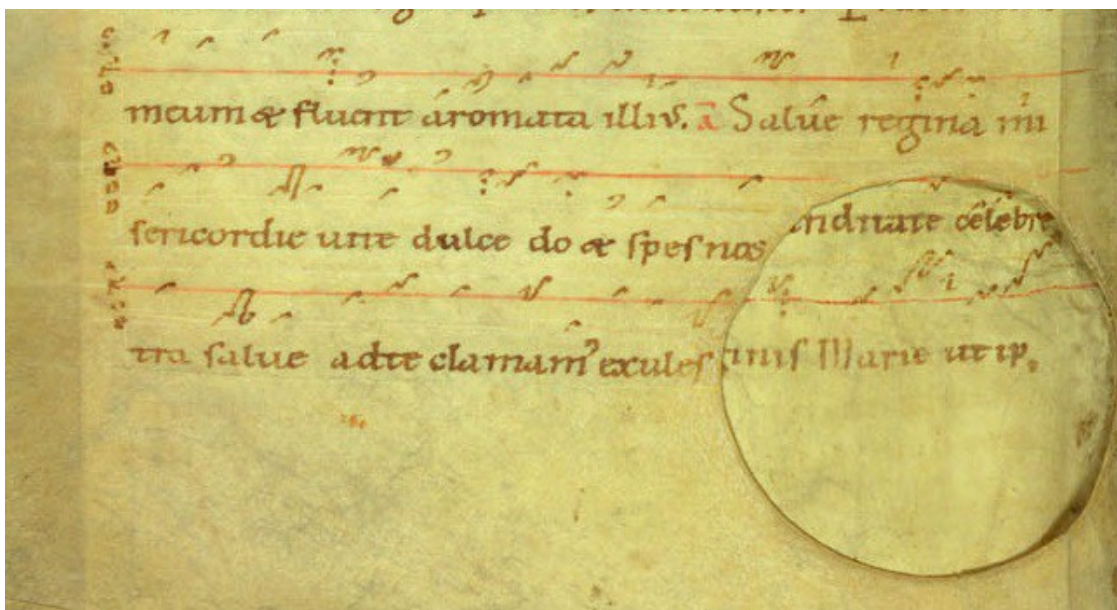 meum & fluent aromata illiꝰ. a Salue regina mi
sericordie uite dulce do & spes nos nditate celebre
tra salue ad te clamamꝰ exules inis Marie ut ip